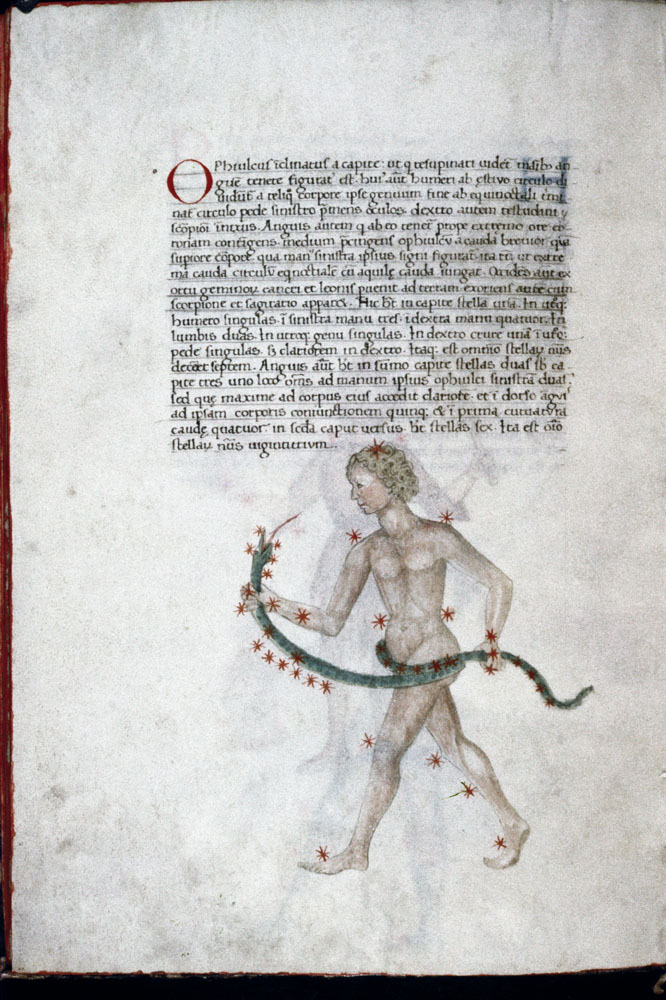 OPhiulcus īclinatus a capite: ut q̄ resupinati videt̄ manib: an
guē tenere figurat est. hui aūt humeri ab estivo circulo di
vidūt̄ a reliq̄ corpore ipse genuum fine ab equinoctiali
nat̄ circulo pede sinistro p̄mens oculos. dextro autem testudini
scorpiōi inixus. Anguis autem q̄ ab eo tenet̄ prope extremo ore co
ronam contigens. medium p̄cingens ophiulcū a cauda brevior. qua
supiore corpore. qua man sinistra ipsius signi figurat. ita tn̄ ut extre
ma cauda circulū equinoctiale cū aquile cauda iungat. Occidēs aūt ex
ortu geminor̄ cancri et leonis puenit ad terram exoriens aute cum
scorpione et sagitario apparet. Hic h̄t in capite stella unā. In
humero singulas. ī sinistra manu tres. ī dextra manu quatuor. In
lumbis duas. In utroq: genu singulas. In dextro crure unā ī
pede singulas. s̄ clariorem in dextro. Itaq: est omnino stellar̄ nūs
decēet septem. Anguis aūt h̄t in sūmo capite stellas duas sb̄ ca
pite tres uno loco om̄s ad manum ipsius ophiulci sinistrā duas.
sed que maxime ad corpus eius accedit clariorē. et ī dorso
ad ipsam corporis coniunctionem quinq: & ī prima curuatura
caudę quatuor. in secda caput versus. h̄t stellas sex. Ita est oīo
stellar̄ nūs